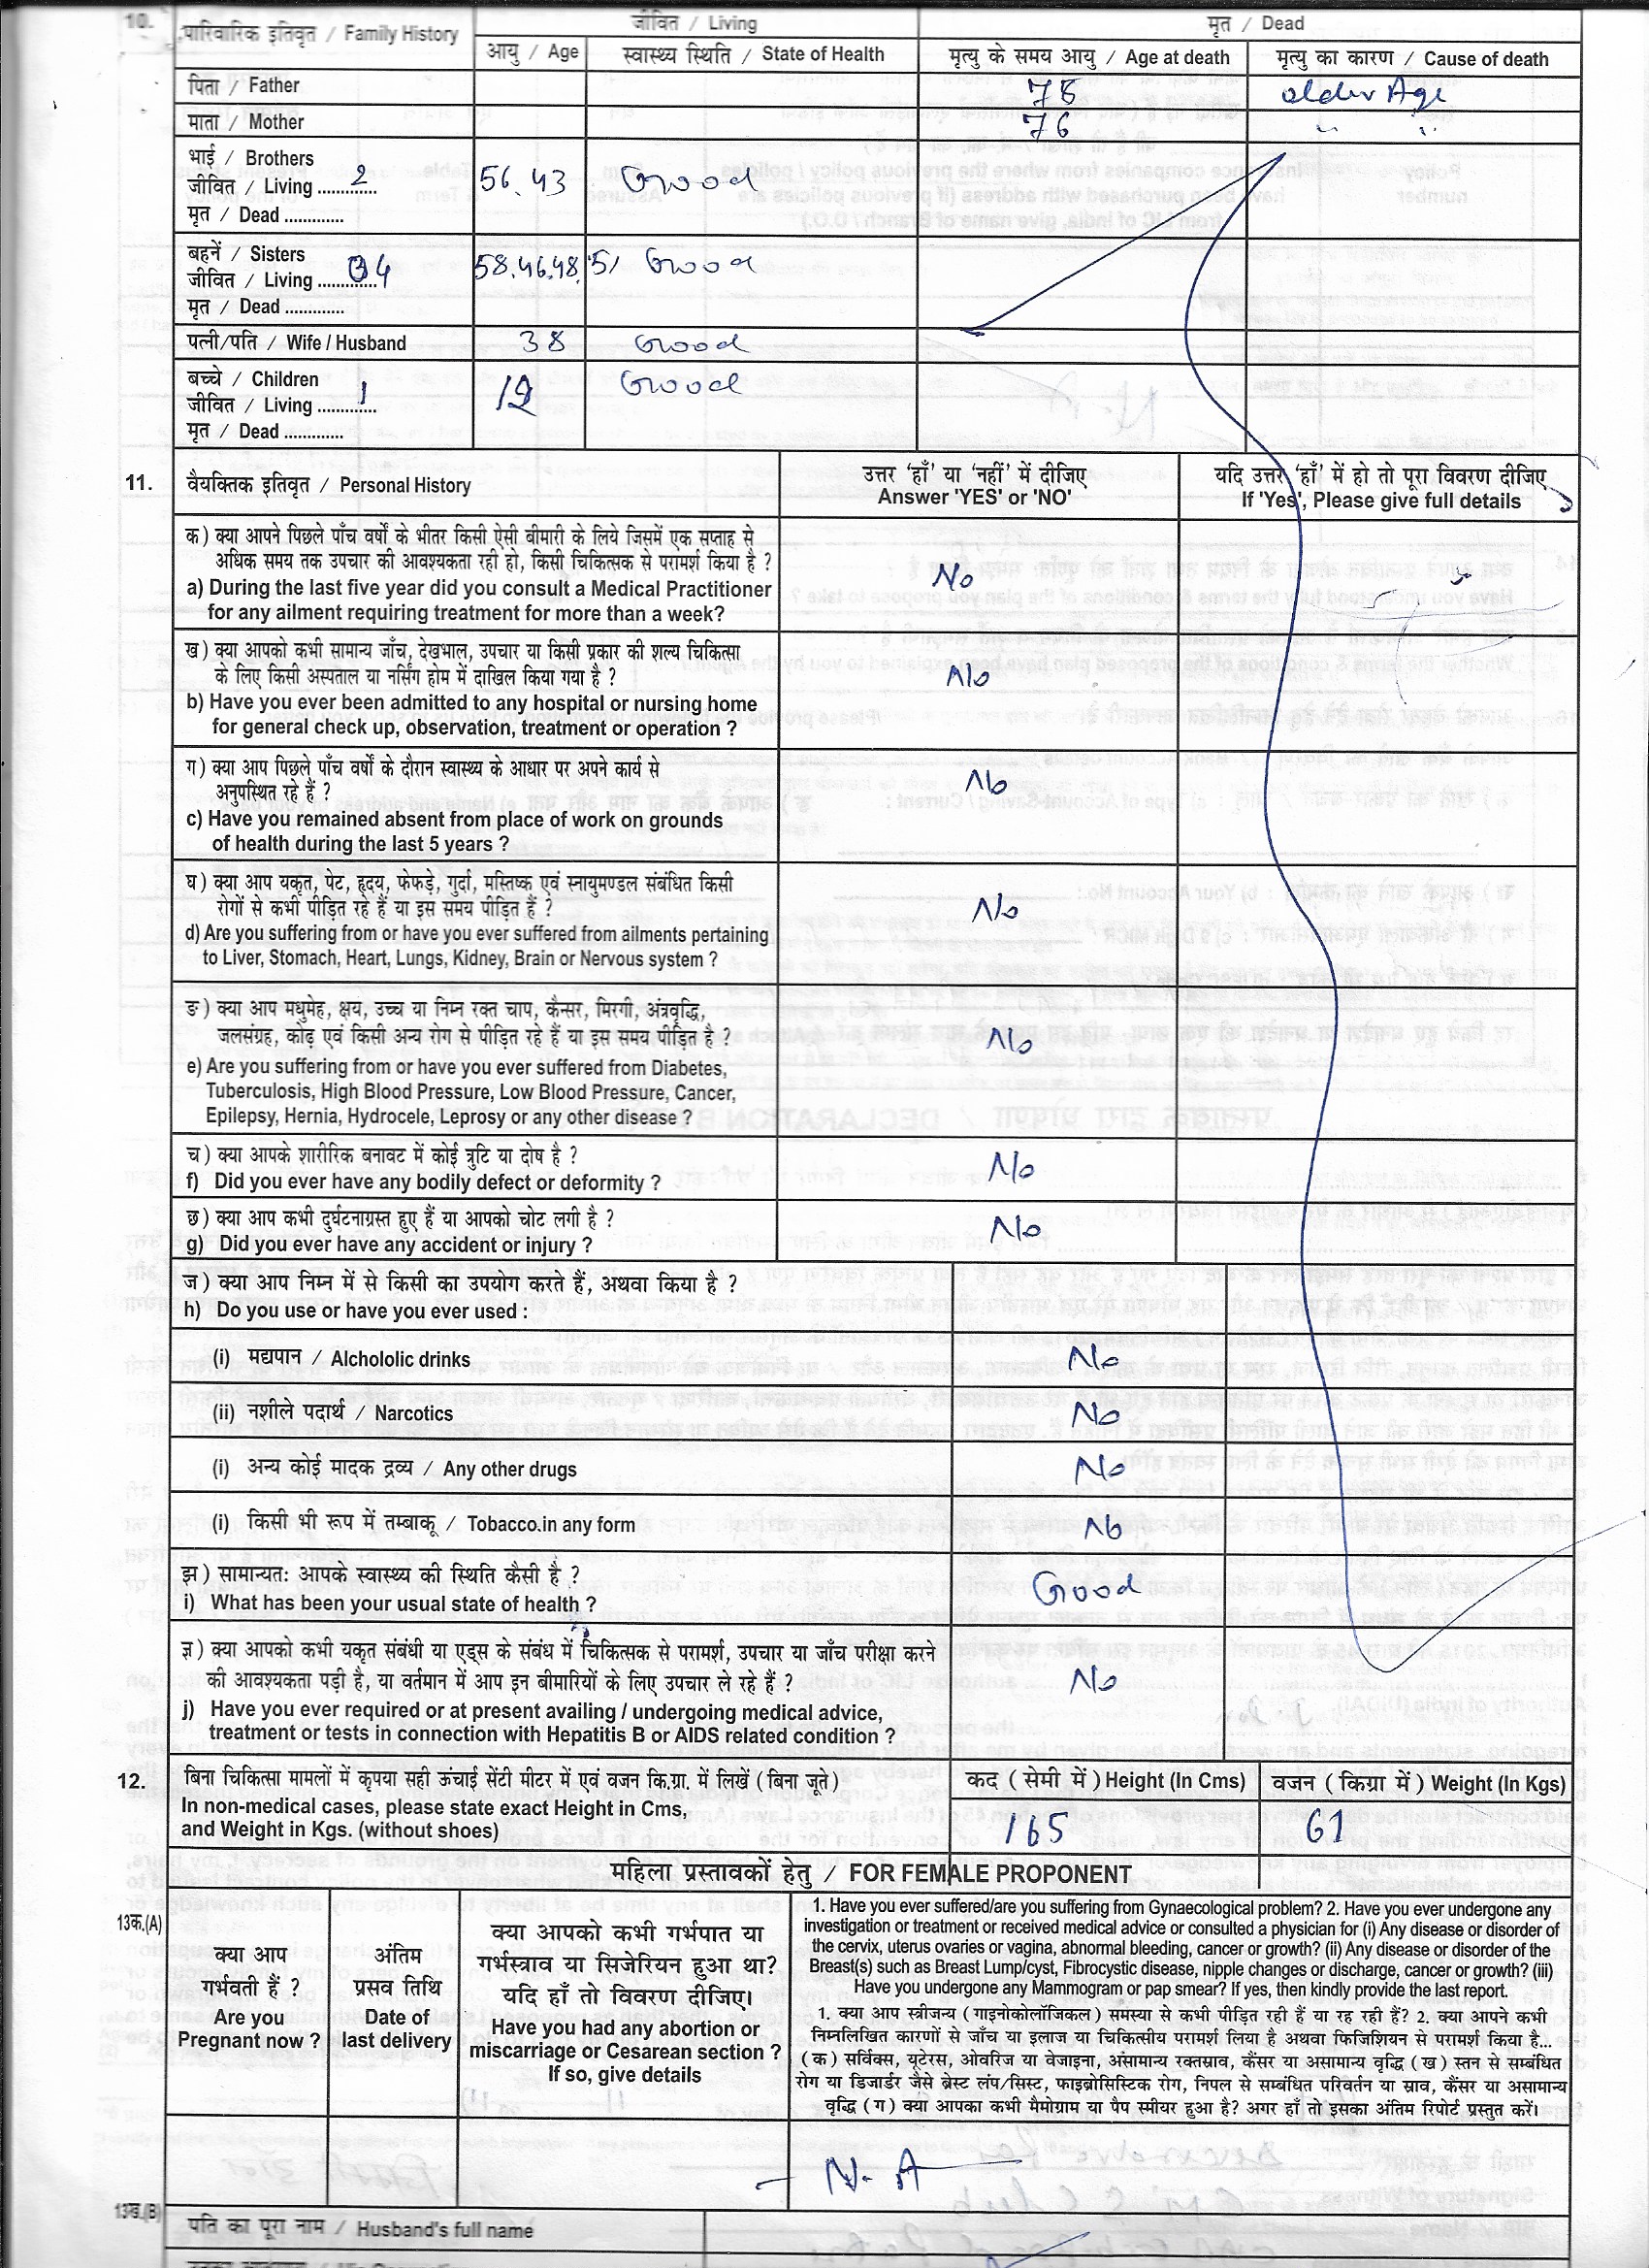 10.
पारिवारिक इतिवृत / Family History
जीवित / Living
मृत / Dead
आयु / Age
स्वास्थ्य स्थिति / State of Health
मृत्यु के समय आयु / Age at death
मृत्यु का कारण / Cause of death
पिता / Father
78
older Age
माता / Mother
76
" "
भाई / Brothers
जीवित / Living ............ 2
56, 43
Good
मृत / Dead .............
बहनें / Sisters
जीवित / Living ............. 04
58,46,48,51
Good
मृत / Dead .............
पत्नी/पति / Wife / Husband
38
Good
बच्चे / Children
जीवित / Living ............. 1
12
Good
मृत / Dead .............
11.
वैयक्तिक इतिवृत / Personal History
उत्तर ‘हाँ’ या ‘नहीं’ में दीजिए
Answer 'YES' or 'NO'
यदि उत्तर ‘हाँ’ में हो तो पूरा विवरण दीजिए
If 'Yes', Please give full details
क) क्या आपने पिछले पाँच वर्षों के भीतर किसी ऐसी बीमारी के लिये जिसमें एक सप्ताह से
अधिक समय तक उपचार की आवश्यकता रही हो, किसी चिकित्सक से परामर्श किया है ?
a) During the last five year did you consult a Medical Practitioner
for any ailment requiring treatment for more than a week?
No
ख) क्या आपको कभी सामान्य जाँच, देखभाल, उपचार या किसी प्रकार की शल्य चिकित्सा
के लिए किसी अस्पताल या नर्सिंग होम में दाखिल किया गया है ?
b) Have you ever been admitted to any hospital or nursing home
for general check up, observation, treatment or operation ?
No
ग) क्या आप पिछले पाँच वर्षों के दौरान स्वास्थ्य के आधार पर अपने कार्य से
अनुपस्थित रहे हैं ?
c) Have you remained absent from place of work on grounds
of health during the last 5 years ?
No
घ) क्या आप यकृत, पेट, हृदय, फेफड़े, गुर्दा, मस्तिष्क एवं स्नायुमण्डल संबंधित किसी
रोगों से कभी पीड़ित रहे हैं या इस समय पीड़ित हैं ?
d) Are you suffering from or have you ever suffered from ailments pertaining
to Liver, Stomach, Heart, Lungs, Kidney, Brain or Nervous system ?
No
ङ) क्या आप मधुमेह, क्षय, उच्च या निम्न रक्त चाप, कैन्सर, मिरगी, अंत्रवृद्धि,
जलसंग्रह, कोढ़ एवं किसी अन्य रोग से पीड़ित रहे हैं या इस समय पीड़ित है ?
e) Are you suffering from or have you ever suffered from Diabetes,
Tuberculosis, High Blood Pressure, Low Blood Pressure, Cancer,
Epilepsy, Hernia, Hydrocele, Leprosy or any other disease ?
No
च) क्या आपके शारीरिक बनावट में कोई त्रुटि या दोष है ?
f) Did you ever have any bodily defect or deformity ?
No
छ) क्या आप कभी दुर्घटनाग्रस्त हुए हैं या आपको चोट लगी है ?
g) Did you ever have any accident or injury ?
No
ज) क्या आप निम्न में से किसी का उपयोग करते हैं, अथवा किया है ?
h) Do you use or have you ever used :
(i) मद्यपान / Alchololic drinks
No
(ii) नशीले पदार्थ / Narcotics
No
(i) अन्य कोई मादक द्रव्य / Any other drugs
No
(i) किसी भी रूप में तम्बाकू / Tobacco.in any form
No
झ) सामान्यतः आपके स्वास्थ्य की स्थिति कैसी है ?
i) What has been your usual state of health ?
Good
ञ) क्या आपको कभी यकृत संबंधी या एड्स के संबंध में चिकित्सक से परामर्श, उपचार या जाँच परीक्षा करने
की आवश्यकता पड़ी है, या वर्तमान में आप इन बीमारियों के लिए उपचार ले रहे हैं ?
j) Have you ever required or at present availing / undergoing medical advice,
treatment or tests in connection with Hepatitis B or AIDS related condition ?
No
12.
बिना चिकित्सा मामलों में कृपया सही ऊंचाई सेंटी मीटर में एवं वजन कि.ग्रा. में लिखें (बिना जूते)
In non-medical cases, please state exact Height in Cms,
and Weight in Kgs. (without shoes)
कद (सेमी में) Height (In Cms)
वजन (किग्रा में) Weight (In Kgs)
165
61
महिला प्रस्तावकों हेतु / FOR FEMALE PROPONENT
13क.(A)
क्या आप
गर्भवती हैं ?
Are you
Pregnant now ?
अंतिम
प्रसव तिथि
Date of
last delivery
क्या आपको कभी गर्भपात या
गर्भस्त्राव या सिजेरियन हुआ था?
यदि हाँ तो विवरण दीजिए।
Have you had any abortion or
miscarriage or Cesarean section ?
If so, give details
1. Have you ever suffered/are you suffering from Gynaecological problem? 2. Have you ever undergone any
investigation or treatment or received medical advice or consulted a physician for (i) Any disease or disorder of
the cervix, uterus ovaries or vagina, abnormal bleeding, cancer or growth? (ii) Any disease or disorder of the
Breast(s) such as Breast Lump/cyst, Fibrocystic disease, nipple changes or discharge, cancer or growth? (iii)
Have you undergone any Mammogram or pap smear? If yes, then kindly provide the last report.
1. क्या आप स्त्रीजन्य (गाइनोकोलॉजिकल) समस्या से कभी पीड़ित रही हैं या रह रही हैं? 2. क्या आपने कभी
निम्नलिखित कारणों से जाँच या इलाज या चिकित्सीय परामर्श लिया है अथवा फिजिशियन से परामर्श किया है...
(क) सर्विक्स, यूटेरस, ओवरिज या वेजाइना, असामान्य रक्तस्राव, कैंसर या असामान्य वृद्धि (ख) स्तन से सम्बंधित
रोग या डिजार्डर जैसे ब्रेस्ट लंप/सिस्ट, फाइब्रोसिस्टिक रोग, निपल से सम्बंधित परिवर्तन या स्राव, कैंसर या असामान्य
वृद्धि (ग) क्या आपका कभी मैमोग्राम या पैप स्मीयर हुआ है? अगर हाँ तो इसका अंतिम रिपोर्ट प्रस्तुत करें।
N. A
13ख.(B)
पति का पूरा नाम / Husband's full name